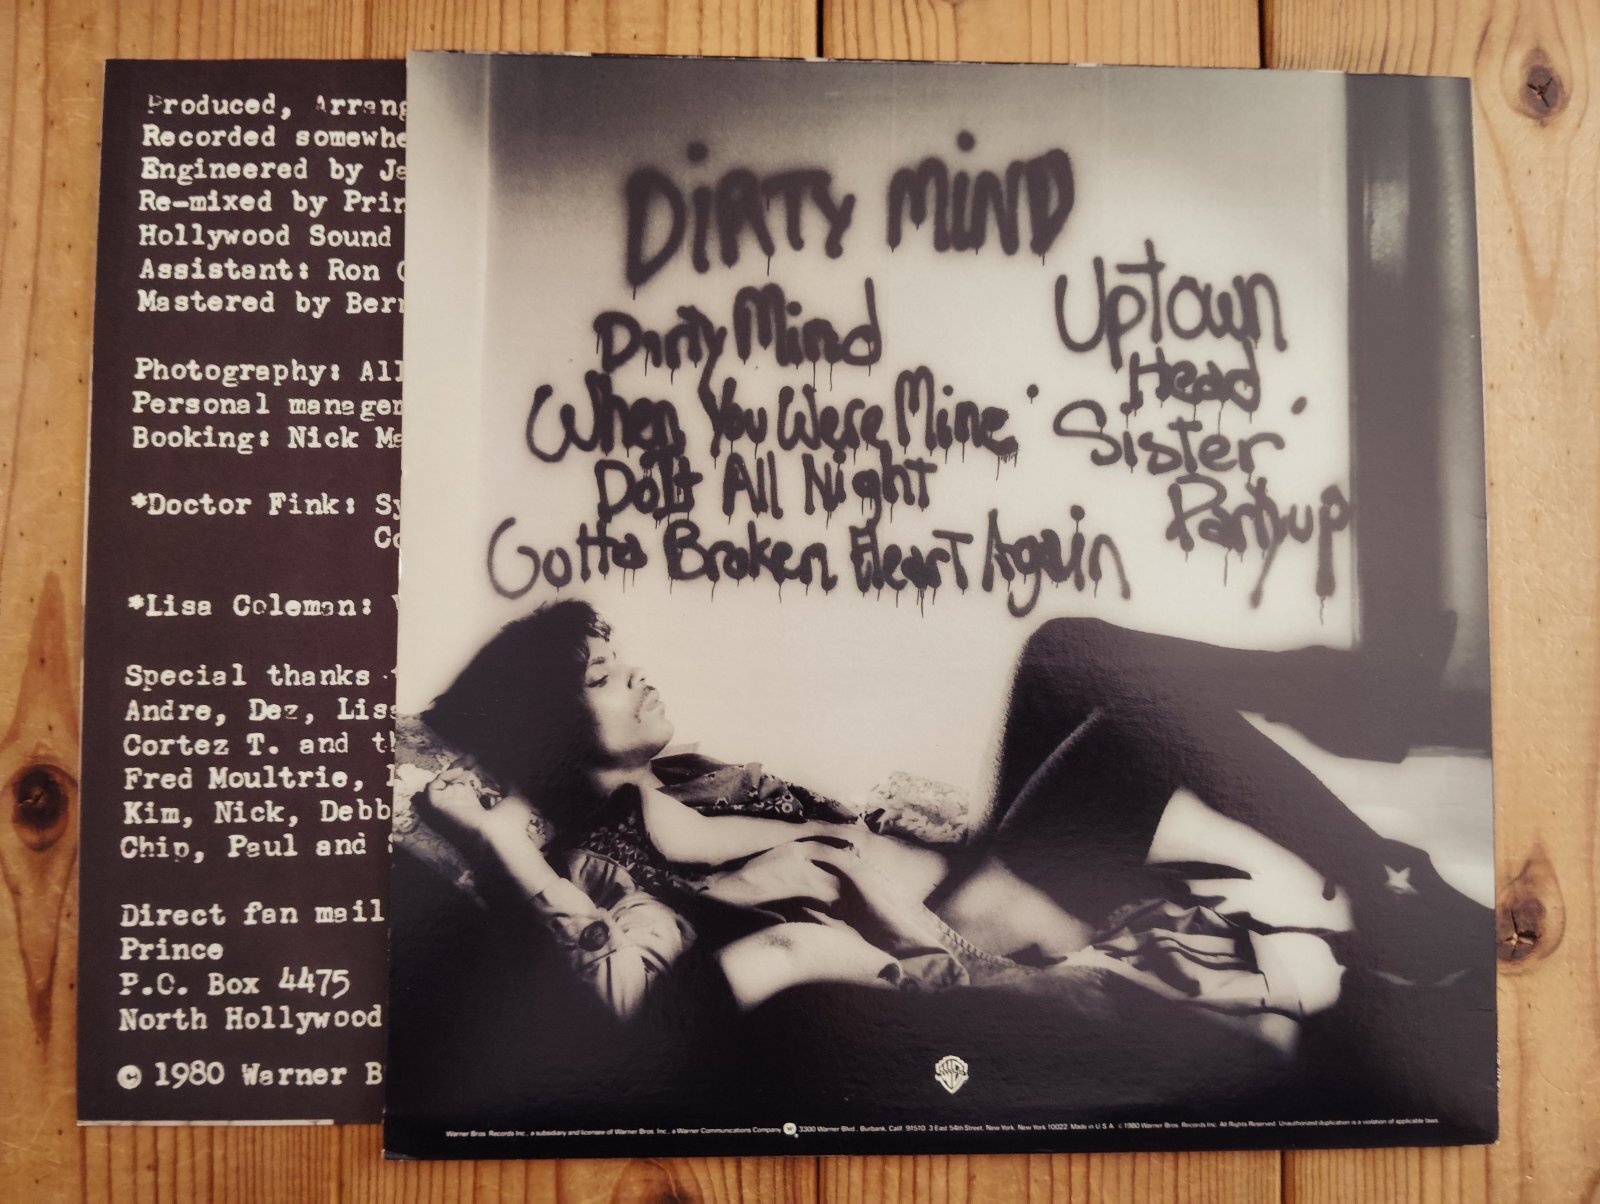 Produced, Arrang
Recorded somewhe
Engineered by Ja
Re-mixed by Prin
Hollywood Sound
Assistant: Ron
Mastered by Bern
Photography: All
Personal manager
Booking: Nick Ma
*Doctor Fink: Sy
Co
*Lisa Coleman:
Special thanks
Andre, Dez, Lisa
Cortez T. and th
Fred Moultrie,
Kim, Nick, Debb
Chip, Paul and
Direct fan mail
Prince
P.O. Box 4475
North Hollywood
© 1980 Warner B
DiRTY MiND
Dirty Mind
When You Were Mine
Do It All Night
Gotta Broken Heart Again
Uptown
Head
Sister
Partyup
Warner Bros. Records Inc., a subsidiary and licensee of Warner Bros. Inc., a Warner Communications Company 3300 Warner Blvd., Burbank, Calif. 91510. 3 East 54th Street, New York, New York 10022. Made in U.S.A. © 1980 Warner Bros. Records Inc. All Rights Reserved. Unauthorized duplication is a violation of applicable laws.